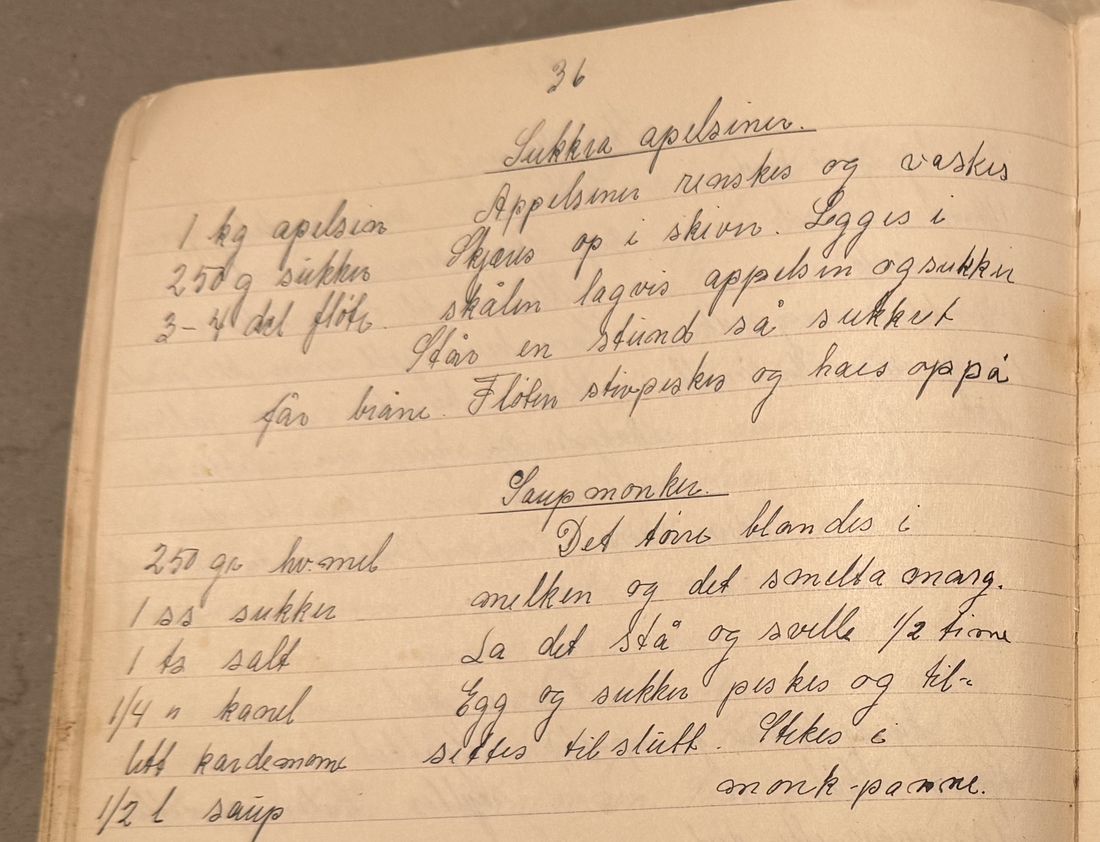 36
Sukkra apelsiner.
1 kg apelsin Appelsiner renskes og vaskes
250 g sukker Skjæres op i skiver. Legges i
3-4 del fløte. skålen lagvis appelsin og sukker
Står en stund så sukkret
får bråne. Fløten stivpeskes og haes oppå
Saupmonker.
250 gr hv.mel Det tørre blandes i
1 ss sukker melken og det smelta marg.
1 ts salt La det stå og svelle 1/2 time
1/4 " kanel Egg og sukker peskes og til-
litt kardemome settes til slutt. Stekes i
1/2 l saup monk-panne.